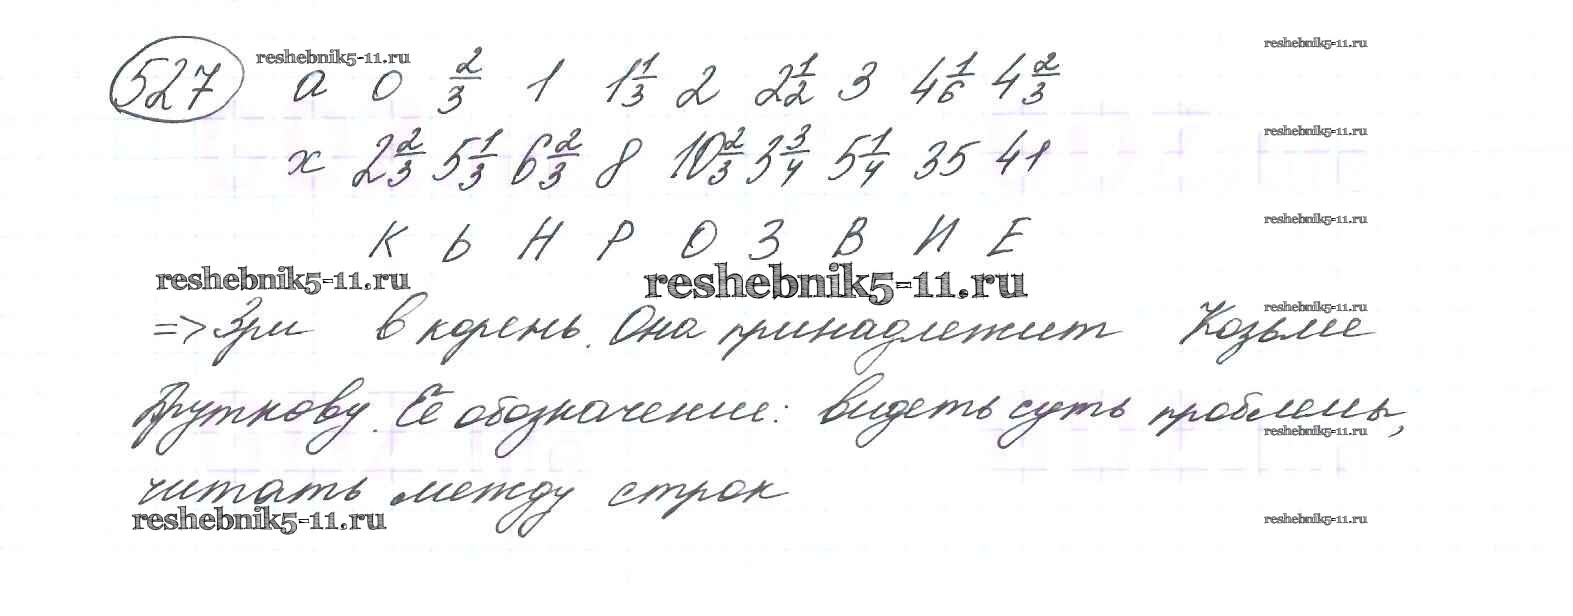 527 reshebnik5-11.ru а 0 2/3 1 1 1/3 2 2 1/2 3 4 1/6 4 2/3 reshebnik5-11.ru
х 2 2/3 5 1/3 6 2/3 8 10 2/3 3 3/4 5 1/4 35 41 reshebnik5-11.ru
К Ь Н Р О З В И Е reshebnik5-11.ru
reshebnik5-11.ru reshebnik5-11.ru
=> Зри в корень. Она принадлежит Козьме reshebnik5-11.ru
Пруткову. Её обозначение: видеть суть проблемы, reshebnik5-11.ru
читать между строк
reshebnik5-11.ru reshebnik5-11.ru